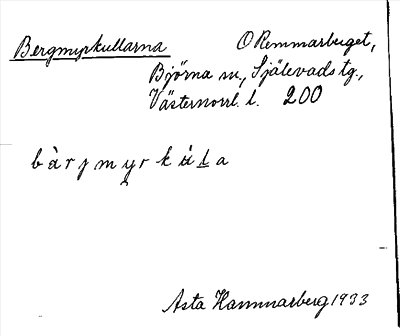 Bergmyrkullarna O Remmarberget,
Björna sn., Själevads tg.,
Västernorrl. l. 200
bàrjmyrkùla
Asta Hammarberg 1933